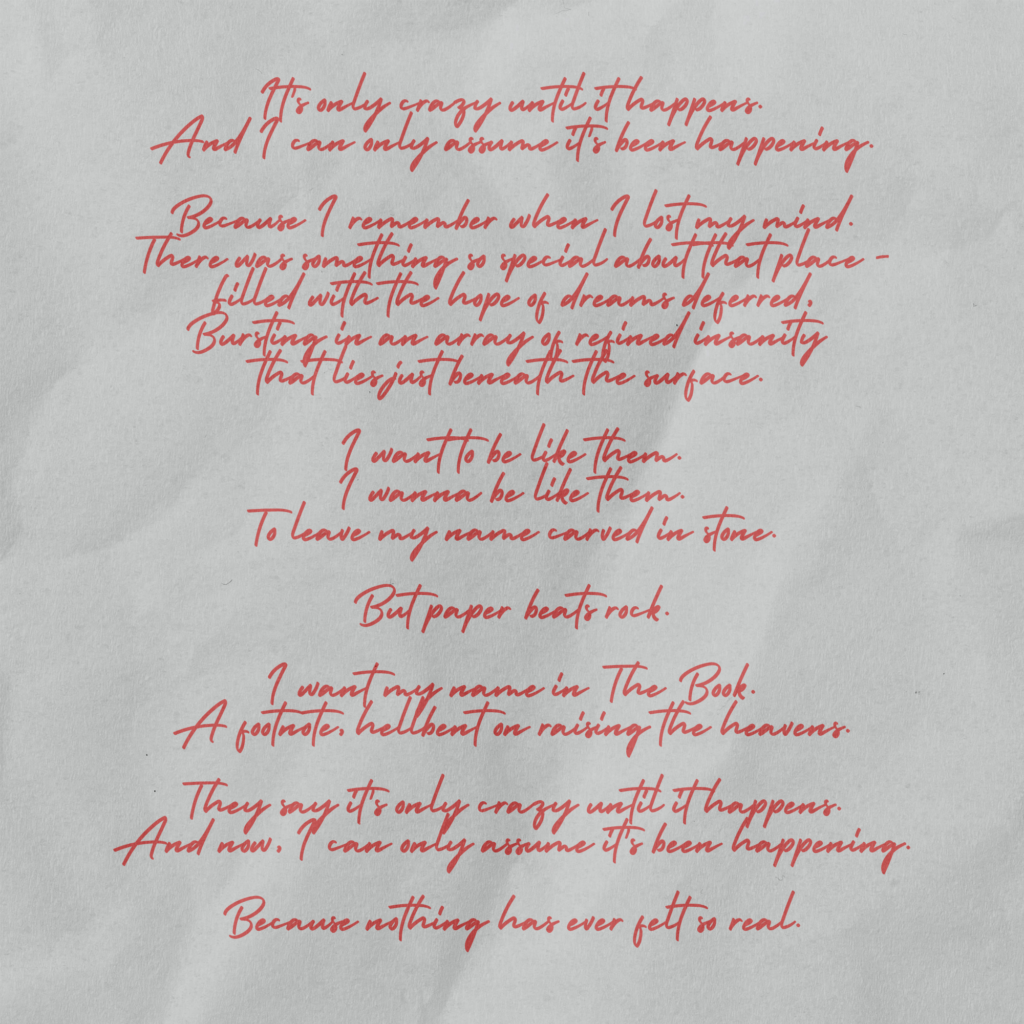 It's only crazy until it happens.
And I can only assume it's been happening.
Because I remember when I lost my mind.
There was something so special about that place -
filled with the hope of dreams deferred,
Bursting in an array of refined insanity
that lies just beneath the surface.
I want to be like them.
I wanna be like them.
To leave my name carved in stone.
But paper beats rock.
I want my name in The Book.
A footnote, hellbent on raising the heavens.
They say it's only crazy until it happens.
And now, I can only assume it's been happening.
Because nothing has ever felt so real.